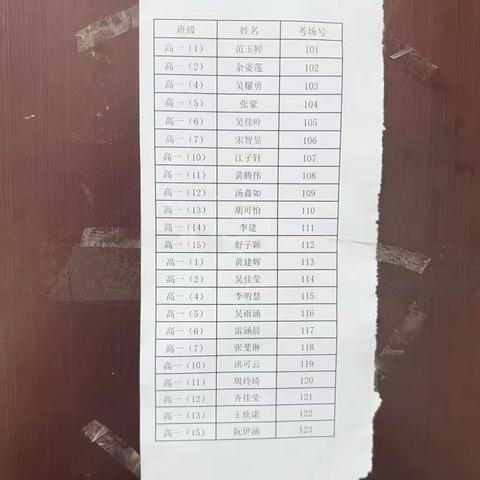 班级 姓名 考场号
高一（1） 范玉婷 101
高一（2） 余姿莲 102
高一（4） 吴耀勇 103
高一（5） 张豪 104
高一（6） 吴佳叶 105
高一（7） 宋智昱 106
高一（10） 江子轩 107
高一（11） 黄腾伟 108
高一（12） 汤鑫如 109
高一（13） 胡可怡 110
高一（14） 李建 111
高一（15） 舒子颖 112
高一（1） 黄建辉 113
高一（2） 吴佳莹 114
高一（4） 李明慧 115
高一（5） 吴雨涵 116
高一（6） 雷涵晨 117
高一（7） 张斐琳 118
高一（10） 洪可云 119
高一（11） 周玲琦 120
高一（12） 齐佳莹 121
高一（13） 王欣诺 122
高一（15） 阮伊涵 123